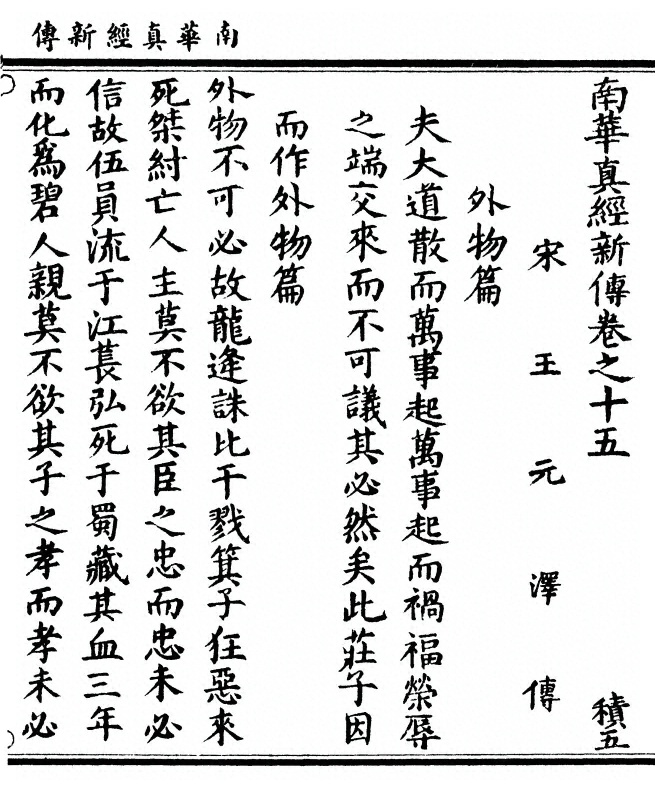 南華真經新傳
南華真經新傳卷之十五 積五
宋王元澤傳
外物篇
夫大道散而萬事起萬事起而禍福榮辱
之端交來而不可議其必然矣此莊子因
而作外物篇
外物不可必故龍逄誅比干戮箕子狂惡來
死桀紂亡人主莫不欲其臣之忠而忠未必
信故伍員流于江萇弘死于蜀藏其血三年
而化爲碧人親莫不欲其子之孝而孝未必